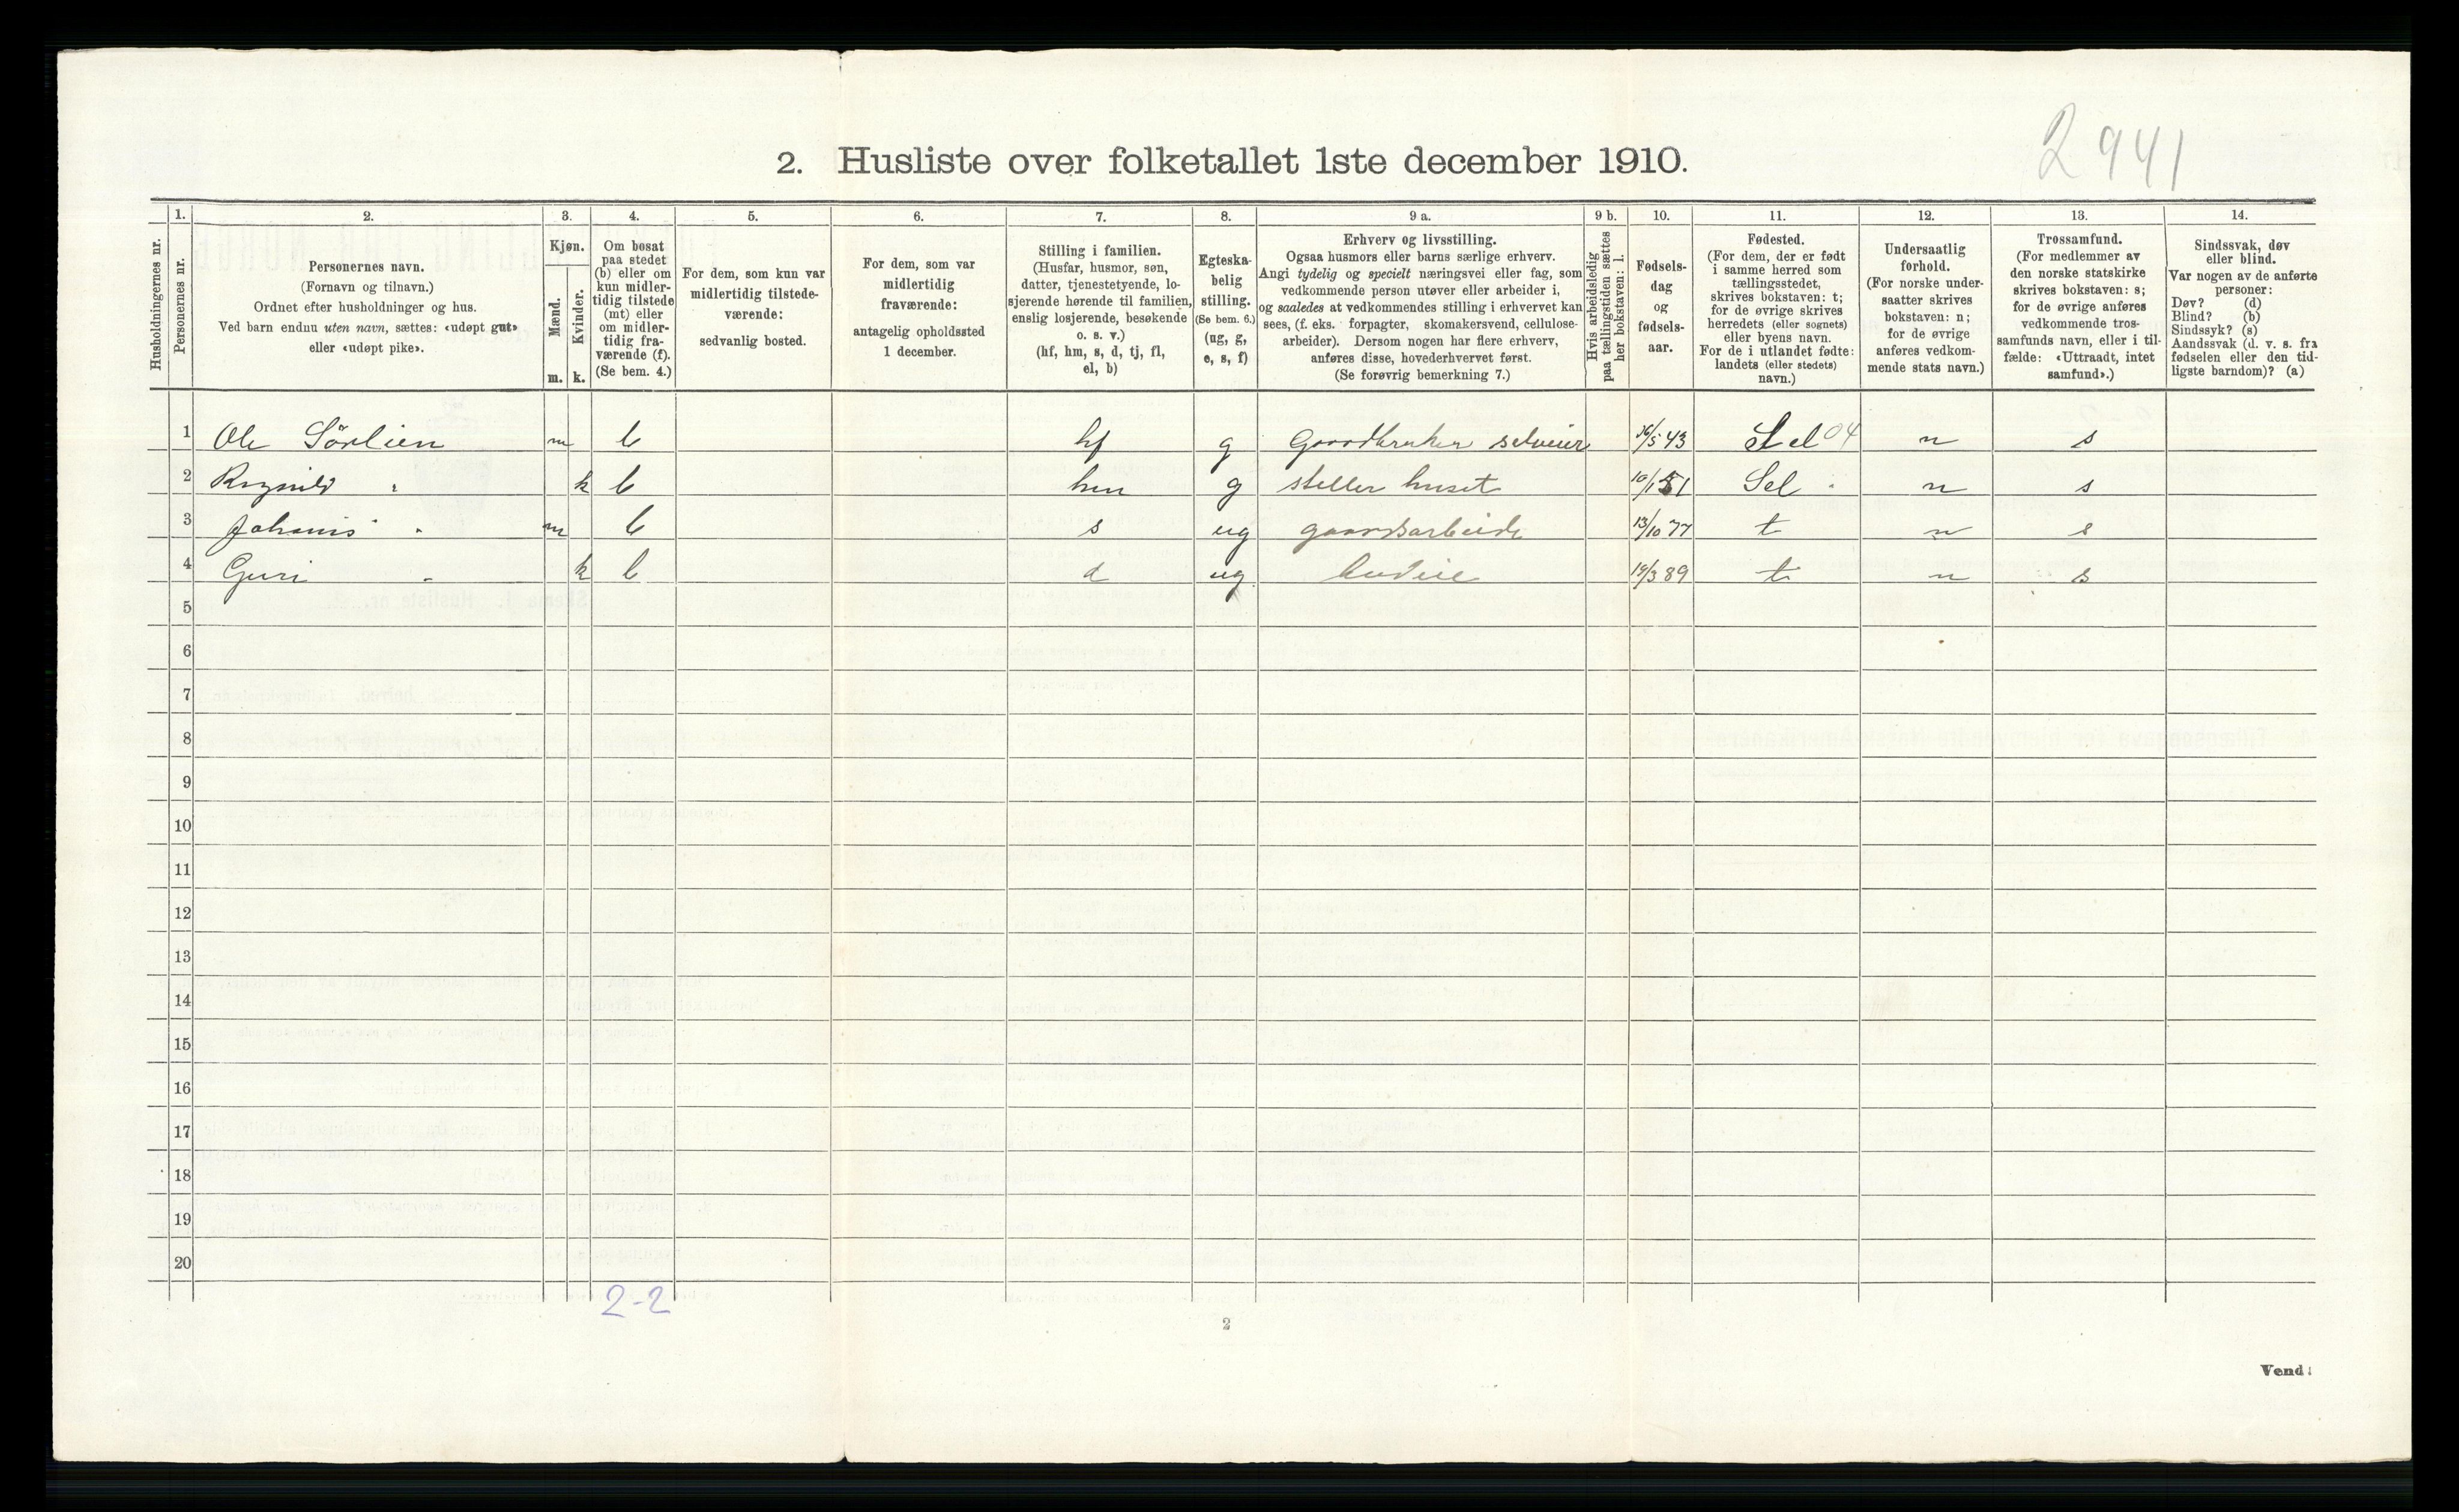 2941
2. Husliste over folketallet 1ste december 1910.
Husholdningernes nr.
1.
Personernes nr.
2.
Personernes navn.
(Fornavn og tilnavn.)
Ordnet efter husholdninger og hus.
Ved barn endnu uten navn, sættes: «udøpt gut»
eller «udøpt pike».
3.
Kjøn.
Mænd.
Kvinder.
m. k.
4.
Om bosat
paa stedet
(b) eller om
kun midler-
tidig tilstede
(mt) eller
om midler-
tidig fra-
værende (f).
(Se bem. 4.)
5.
For dem, som kun var
midlertidig tilstede-
værende:
sedvanlig bosted.
6.
For dem, som var
midlertidig
fraværende:
antagelig opholdssted
1 december.
7.
Stilling i familien.
(Husfar, husmor, søn,
datter, tjenestetyende, lo-
sjerende hørende til familien,
enslig losjerende, besøkende
o. s. v.)
(hf, hm, s, d, tj, fl,
el, b)
8.
Egteska-
belig
stilling.
(Se bem. 6.)
(ug, g,
e, s, f)
9 a.
Erhverv og livsstilling.
Ogsaa husmors eller barns særlige erhverv.
Angi tydelig og specielt næringsvei eller fag, som
vedkommende person utøver eller arbeider i,
og saaledes at vedkommendes stilling i erhvervet kan
sees, (f. eks. forpagter, skomakersvend, cellulose-
arbeider). Dersom nogen har flere erhverv,
anføres disse, hovederhvervet først.
(Se forøvrig bemerkning 7.)
9 b.
Hvis arbeidsledig
paa tællingstiden sættes
her bokstaven: l.
10.
Fødsels-
dag
og
fødsels-
aar.
11.
Fødested.
(For dem, der er født
i samme herred som
tællingsstedet,
skrives bokstaven: t;
for de øvrige skrives
herredets (eller sognets)
eller byens navn.
For de i utlandet fødte:
landets (eller stedets)
navn.)
12.
Undersaatlig
forhold.
(For norske under-
saatter skrives
bokstaven: n;
for de øvrige
anføres vedkom-
mende stats navn.)
13.
Trossamfund.
(For medlemmer av
den norske statskirke
skrives bokstaven: s;
for de øvrige anføres
vedkommende tros-
samfunds navn, eller i til-
fælde: «Uttraadt, intet
samfund».)
14.
Sindssvak, døv
eller blind.
Var nogen av de anførte
personer:
Døv? (d)
Blind? (b)
Sindssyk? (s)
Aandssvak (d. v. s. fra
fødselen eller den tid-
ligste barndom)? (a)
1 Ole Sörlien m b hf g Gaardbruker selveier /5 43 Sel 04 n s
2 Ragnild " k b hm g steller huset 10/1 51 Sel " n s
3 Johanis " m b s ug gaardsarbeide 13/10 77 t n s
4 Guri " k b d ug budeie 19/3 89 t n s
5
6
7
8
9
10
11
12
13
14
15
16
17
18
19
20
2-2
2
Vend!